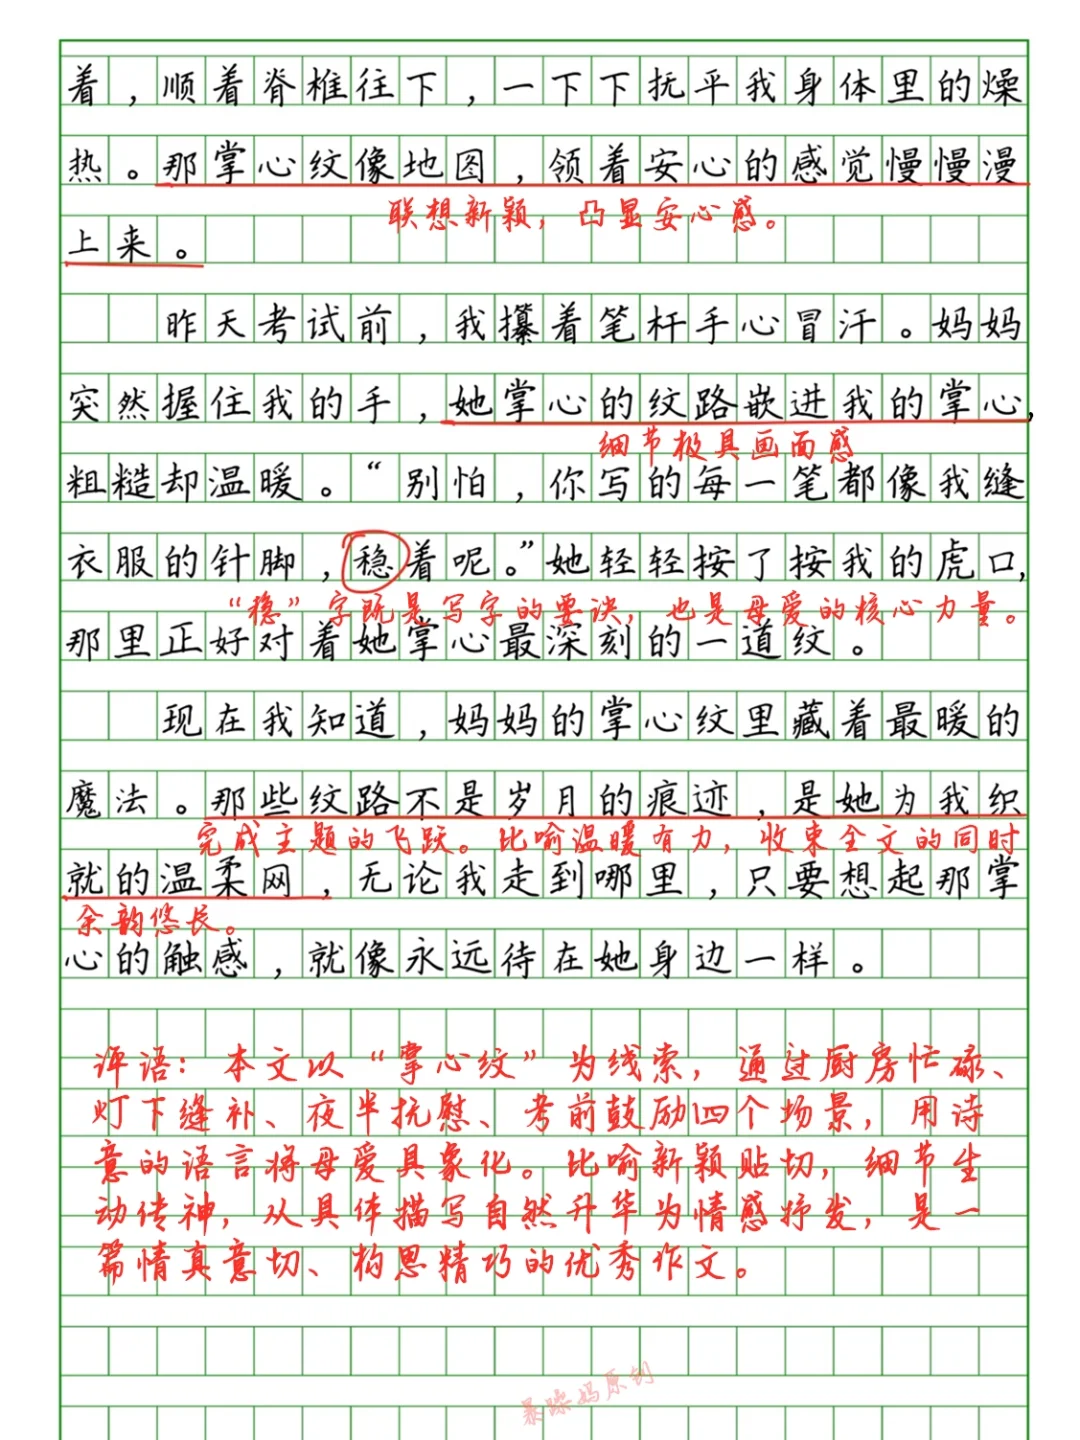 着，顺着脊椎往下，一下下抚平我身体里的燥
热。那掌心纹像地图，领着安心的感觉慢慢漫
联想新颖，凸显安心感。
上来。
昨天考试前，我攥着笔杆手心冒汗。妈妈
突然握住我的手，她掌心的纹路嵌进我的掌心，
细节极具画面感
粗糙却温暖。“别怕，你写的每一笔都像我缝
衣服的针脚，稳着呢。”她轻轻按了按我的虎口，
“稳”字既是写字的要诀，也是母爱的核心力量。
那里正好对着她掌心最深刻的一道纹。
现在我知道，妈妈的掌心纹里藏着最暖的
魔法。那些纹路不是岁月的痕迹，是她为我织
完成主题的飞跃。比喻温暖有力，收束全文的同时
就的温柔网，无论我走到哪里，只要想起那掌
余韵悠长。
心的触感，就像永远待在她身边一样。
评语：本文以“掌心纹”为线索，通过厨房忙碌、
灯下缝补、夜半抚慰、考前鼓励四个场景，用诗
意的语言将母爱具象化。比喻新颖贴切，细节生
动传神，从具体描写自然升华为情感抒发，是一
篇情真意切、构思精巧的优秀作文。
暴躁妈原创